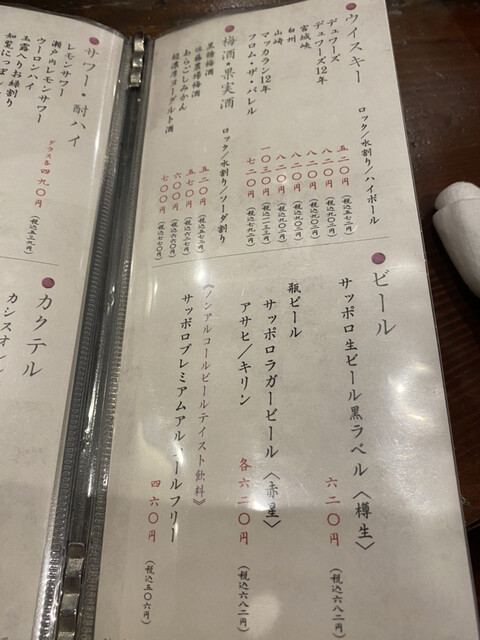 ウイスキー
ロック/水割り/ハイボール
デュワーズ 五二〇円(税込五七二円)
デュワーズ12年 八二〇円(税込九〇二円)
宮城峡 八二〇円(税込九〇二円)
白州 八二〇円(税込九〇二円)
山崎 八二〇円(税込九〇二円)
マッカラン12年 一〇三〇円(税込一一三三円)
フロム・ザ・バレル 七二〇円(税込七九二円)
梅酒・果実酒
ロック/水割り/ソーダ割り
黒糖梅酒 五二〇円(税込五七二円)
佐藤農場梅酒 五七〇円(税込六二七円)
あらごしみかん 六〇〇円(税込六六〇円)
超濃厚ヨーグルト酒 七〇〇円(税込七七〇円)
ビール
サッポロ生ビール黒ラベル〈樽生〉 六二〇円(税込六八二円)
瓶ビール
サッポロラガービール〈赤星〉
アサヒ/キリン 各六二〇円(税込六八二円)
《ノンアルコールビールテイスト飲料》
サッポロプレミアムアルコールフリー 四六〇円(税込五〇六円)
サワー・酎ハイ
レモンサワー
瀬戸内レモンサワー
ウーロンハイ
玉露入りお緑割り
知覧にっぽ
グラス各四九〇円(税込五三九円)
カクテル
カシスオレ